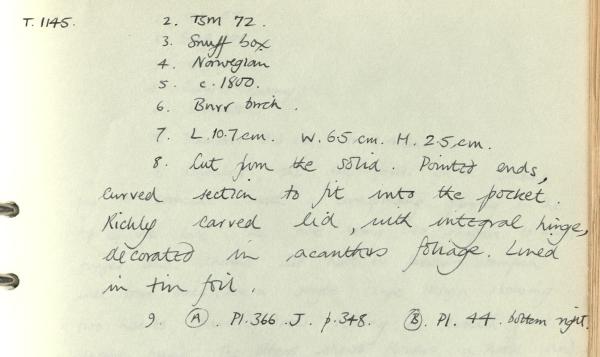 T. 1145. 2. TSM 72.
3. Snuff box
4. Norwegian
5. c. 1800.
6. Burr birch.
7. L. 10.7 cm. W. 6.5 cm. H. 2.5 cm.
8. Cut from the solid. Pointed ends,
curved section to fit into the pocket.
Richly carved lid, with integral hinge,
decorated in acanthus foliage. Lined
in tin foil.
9. (A). Pl. 366. J. p. 348. (B). Pl. 44. bottom right.